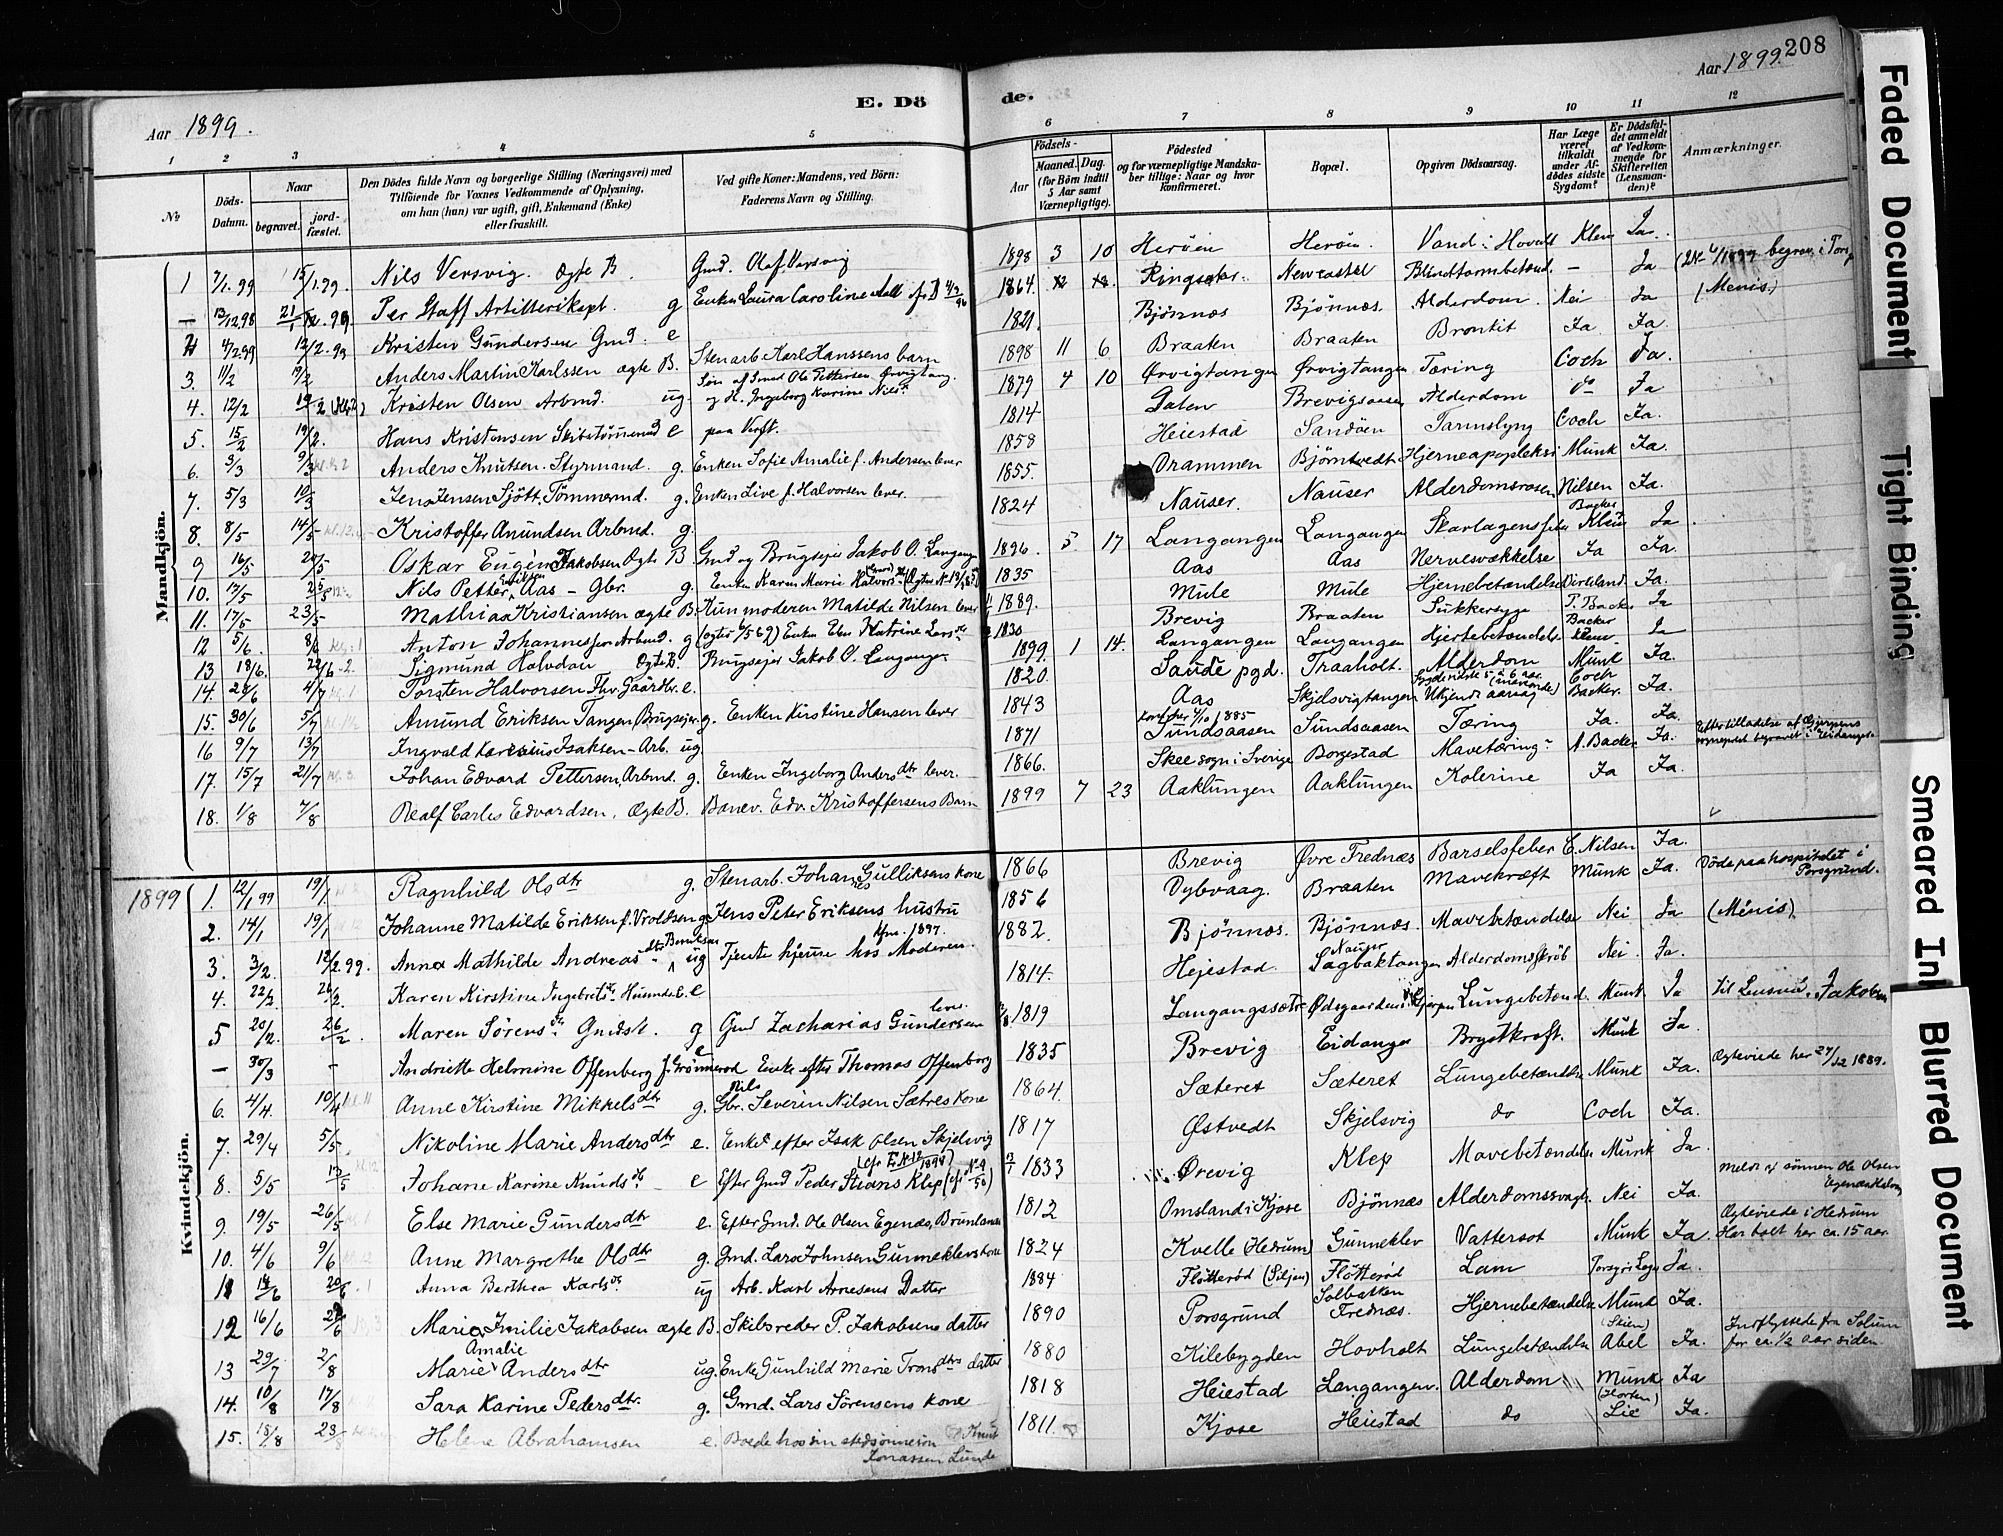 Aar 1899.
E. Dö
de.
Aar 1899. 208
1 2 3 4 5 6 7 8 9 10 11 12
No
Döds-Datum.
Naar
begravet.
jord-fæstet.
Den Dödes fulde Navn og borgerlige Stilling (Næringsvei) med
Tilföiende for Voxnes Vedkommende af Oplysning,
om han (hun) var ugift, gift, Enkemand (Enke)
eller fraskilt.
Ved gifte Koner: Mandens, ved Börn:
Faderens Navn og Stilling.
Födsels-
Aar
Maaned. Dag.
(for Börn indtil
5 Aar samt
Værnepligtige).
Födested
og for værnepligtige Mandska-
ber tillige: Naar og hvor
konfirmeret.
Bopæl.
Opgiven Dödsaarsag.
Har Læge
været
tilkaldt
under Af-
dödes sidste
Sygdom?
Er Dödsfal-
det anmeldt
af Vedkom-
mende for
Skifteretten
(Lensman-
den)?
Anmærkninger.
Mandkjön.
1 7/1.99 15/1.99. Nils Versvig. Ægte B. Gmd. Olaf Versvig 1898 3 10 Herøen Herøen. Vand i Hovedt Klem Ja.
— 13/12 98 Per Staff Artillerikapt. g Enken Laura Caroline 1864. Ringsaker. Newcastel Blindtarmbetænd. — Ja begrav. i Pors
2 4/2 99 12/2.99 Kristen Gundersen Gmd. e 1821. Bjönnæs Bjönnæs. Alderdom. Nei Ja (Menis.)
3. 11/2 19/2 Anders Martin Karlssen ægte B. Stenarb. Karl Hanssens barn 1898 11 6 Braaten Braaten Bronkit Ja Ja.
4. 12/2 19/2 Kristen Olsen Arbmd. ug. Søn af Gmd Ole Pettersen Ørvigtang. og H. Ingeborg Karine Nilsdr 1879 4 10 Ørvigtangen Ørvigtangen Tæring Coch Ja.
5. 15/2 19/2. Hans Kristensen Skibstømmermd e paa Verft. 1814. Gaten Brevigsaasen Alderdom do Ja
6. 3/3 9/3 Anders Knutsen. Styrmand. g. Enken Sofie Amalie f. Andersen lever 1858 Heiestad Sandöen Tarmslyng Coch Ja.
7. 5/3 10/3 Jens Jensen Sjött. Tömmermd. g. Enken Live f. Halvorsen lever. 1855. Drammen Bjørntvedt Hjerneapopleksi Munk Ja.
8. 8/5 14/5 Kristoffer Amundsen Arbmd. g. 1824 Nauser. Nauser Alderdomsrosen Nilsen Ja.
9 16/5 20/5 Oskar Eugen Jakobsen Ægte B Gmd og Brugsejer Jakob O. Langangen 1896. 5. 17 Langangen Langangen Skarlagensfeber Backer Klem Ja
10. 17/5 25/5 Nils Petter Eriksen Aas – Gbr. g. Enken Karen Marie Halvorsdr 1835 Aas Aas Nervesvækkelse Ja Ja.
11. 17/5 23/5 Mathias Kristiansen ægte B. Kun moderen Matilde Nilsen lever 1889. Mule Mule Hjernebetændelse Dirksland. Ja.
12 5/6. 8/6 Anton Johannessen Arbmd. g (ægtev 6/5 69) Enken Elen Katrine Larsdr 1830 Brevig Braaten Sukkersyge P. Backer Ja
13 18/6. 22/6 Sigmund Halvdan Ægte B. Brugsejer Jakob O. Langangen 1899. 1 14. Langangen Langangen Hjertebetændelse Backer Klem Ja
14. 28/6 4/7 Torsten Halvorsen Fhv. Gaardbr. e. 1820. Saude pgd. Traaholt. Alderdom Munk Ja.
15. 30/6 5/7 Amund Eriksen Tangen (Brugsejer g. Enken Kirstine Hansen lever 1843 Aas Skjelsvigtangen Ukjendt aarsag Coch Backer. Ja.
16 9/7 13/7 Ingvald Isaksen – Arb. ug. 1871 Konf. her 4/10 1885 Sundsaasen Sundsaasen Tæring Ja. Ja.
17. 15/7 21/7 Johan Edvard Pettersen, Arbmd. g. Enken Ingeborg Andersdtr lever. 1866. Skee sogn i Sverige Borgestad Mavetæring A. Backer Ja. Efter tilladelse af begravet i Eidanger
18. 1/8 7/8 Realf Carles Edvardsen, Ægte B. Banev. Edv. Kristoffersens Barn 1899 7 23 Aaklungen Aaklungen Kolerine Ja Ja.
Kvindekjön.
1899 1. 12/1 99 19/1. Ragnhild Olsdtr g. Stenarb. Johannes Gulliksens kone 1866 Brevig Övre Frednæs Barselsfeber C. Nilsen Ja.
2. 14/1 19/1 Johanne Matilde Eriksen f. Vroldsen g Jens Peter Eriksens hustru 1856 Dybvaag. Braaten Mavekræft Munk Ja. Döde paa hospitalet i Porsgrund.
3. 3/2. 12/2.99. Anna Mathilde Andreasdtr Berntsen ug Tjente hjeme hos Moderen. kfm. 1897. 1882. Bjönnæs. Bjönnæs. Mavebetændelse Nei Ja (Ménis)
4. 22/2. 26/2. Karen Kirstine Ingebretsdr e 1814. Hejestad. Nauser Sagbaktangen Alderdomsskröb Nei Ja.
5 20/2. 26/2. Maren Sörensdr g Gmd Zacharias Gundersen lever 1819 Langangssætr Lungebetænd. Munk Ja til Lensmd. Jakobsen
— 30/3 – Andriette Helmine Offenberg f. Grönnerød e Enke efter Thomas Offenborg 1835 Brevig Eidanger Brystkræft. Munk Ja.
6. 4/4. 10/4 Anne Kirstine Mikkelsdtr g. Gbr. Nils Severin Nilsen Sætres kone 1864. Sæteret Sæteret Lungebetændelse Munk Ja. Ægteviede her 27/12 1889.
7. 29/4 5/5 Nikoline Marie Andersdtr e. Enke efter Isak Olsen Skjelsvig 1817 Østvedt Skjelsvig do Coch Ja.
8. 5/5 13/5 Johane Karine Knudsdr e Efter Gmd Peder Stians Klep 1833 Ørevig Klep Mavebetændelse Munk Ja.
9. 19/5 26/5 Else Marie Gundersdtr e. Efter Gmd. Ole Olsen Egenæs, Brunlanæs 1812 Omsland i Kjose Bjönnæs Alderdomssvaghed Nei Ja. meldt af sönnen Ole Olsen
10. 4/6 9/6 Anne Margrethe Olsdtr g. Gmd. Lars Johnsen Gunneklevs kone 1824 Kvelle (Hedrum) Gunneklev Vattersot Munk Ja. Ægteviede i Hedrum Har bott her ca. 15 aar.
11 14/6 20/6 Anna Berthea Karlsdr ug Arb. Karl Arnesens Datter 1884 Flötteröd (Siljan) Flötteröd Lam Porsgrs Læge Ja.
12 16/6 Marie Emilie Jakobsen ægte B. Skibsreder P. Jakobsens datter 1890 Porsgrund Solbakken Frednæs. Hjernebetændelse Munk Ja.
13 29/7 2/8 Marie Amalie Andersdtr ug. Enke Gunhild Marie Tronsdtrs datter 1880 Kilebygden Hovholt Lungebetændelse (Skien) Abel Ja. Indflyttede fra Solum for ca. 1/2 aar siden
14. 10/8 17/8 Sara Karine Pedersdtr. g. Gmd. Lars Sörensens kone 1818 Heiestad Langangen. Alderdom Munk Ja
15. 18/8 23/8 Helene Abrahamsen e. Boede hos sin stedsönnesön Knut Jonassen Lunde 1811. Kjose Heiestad do (Horten) Lie Ja.
Faded Document
Tight Binding
Smeared Ink
Blurred Document